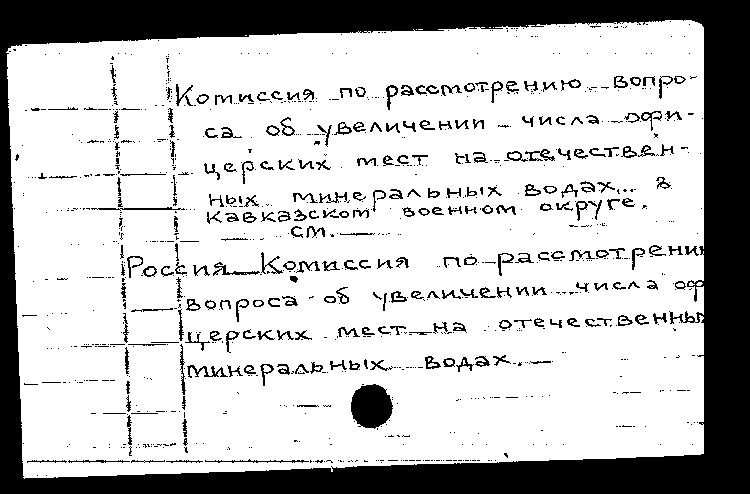 Комиссия по рассмотрению вопро-
са об увеличении числа офи-
церских мест на отечествен-
ных минеральных водах... в
кавказском военном округе.
см.
Россия Комиссия по рассмотрению
вопроса об увеличении числа оф
церских мест на отечественны
минеральных водах.